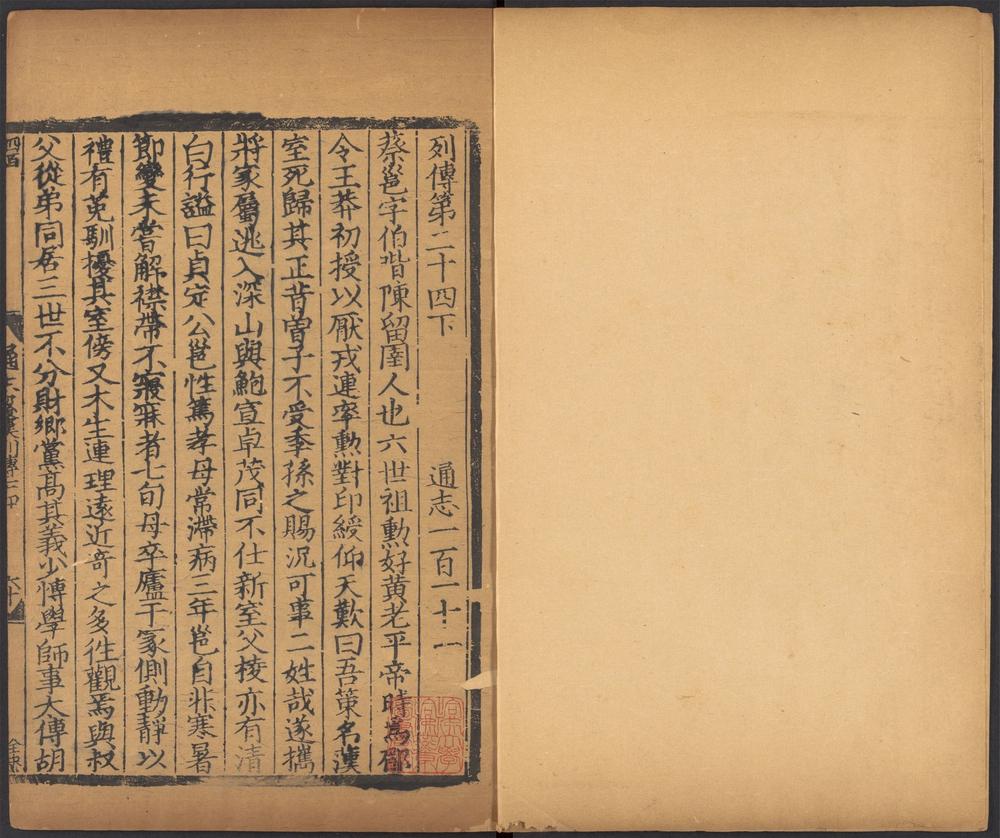 列傳第二十四下 通志一百一十一
蔡邕字伯喈陳留圉人也六世祖勲好黄老平帝時爲郿
令王莽初授以厭戎連率勲對印綬仰天歎曰吾策名漢
室死歸其正昔曽子不受季孫之賜況可事二姓哉遂攜
將家屬逃入深山與鮑宣卓茂同不仕新室父棱亦有清
白行謚曰貞定公邕性篤孝母常滯病三年邕自非寒暑
節變未嘗解襟帶不寢寐者七旬母卒廬于冢側動靜以
禮有莵馴擾其室傍又木生連理逺近竒之多徃觀焉與叔
父從弟同居三世不分財鄉黨髙其義少愽學師事太傅胡